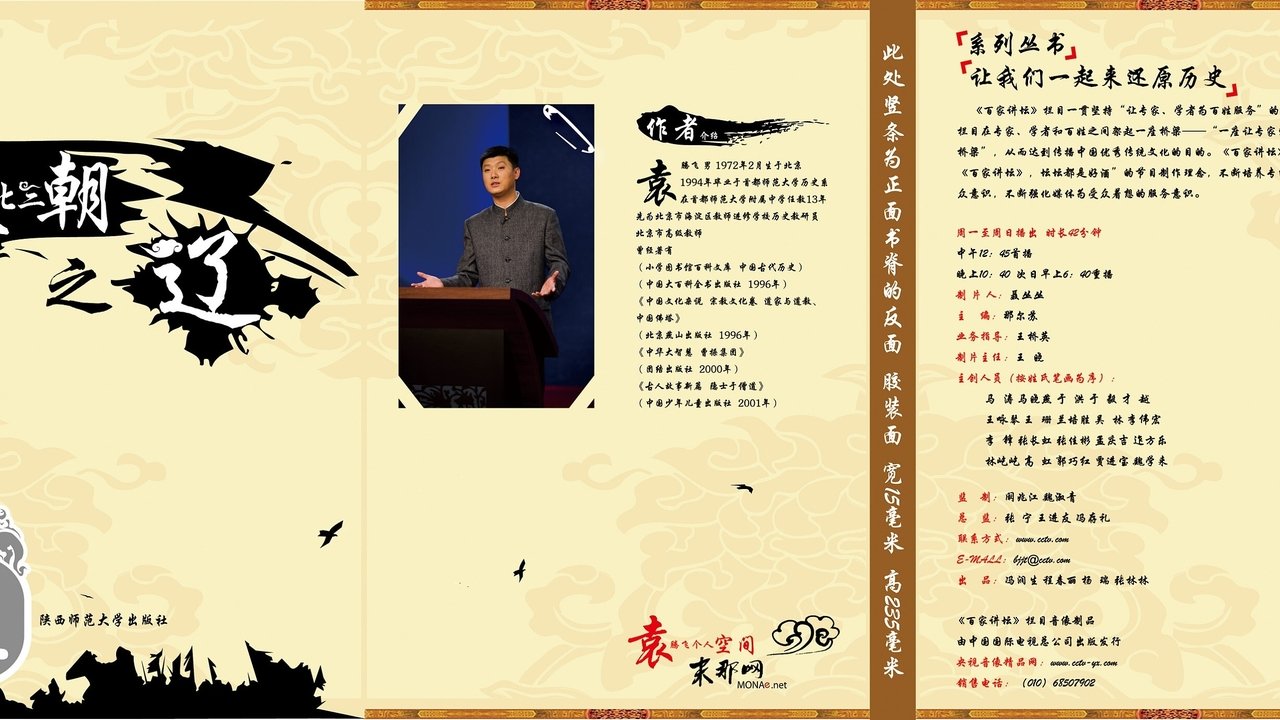 北三朝
之
辽
陕西师范大学出版社
作者 介绍
袁腾飞 男 1972年2月生于北京
1994年毕业于首都师范大学历史系
在首都师范大学附属中学任教13年
先为北京市海淀区教师进修学校历史教研员
北京市高级教师
曾经著有
（小学图书馆百科文库 中国古代历史）
（中国大百科全书出版社 1996年）
《中国文化杂说 宗教文化卷 道家与道教、
中国佛塔》
（北京燕山出版社 1996年）
《中华大智慧 曹操集团》
（团结出版社 2000年）
《古人故事新篇 隐士于僧道》
（中国少年儿童出版社 2001年）
袁腾飞个人空间
末那网
MONAe.net
此处竖条为正面书脊的反面 胶装面 宽15毫米 高235毫米
系列丛书
让我们一起来还原历史
《百家讲坛》栏目一贯坚持“让专家、学者为百姓服务”的
栏目在专家、学者和百姓之间架起一座桥梁——“一座让专家
桥梁”，从而达到传播中国优秀传统文化的目的。《百家讲坛
《百家讲坛》，坛坛都是好酒”的节目制作理念，不断培养专
众意识，不断强化媒体为受众着想的服务意识。
周一至周日播出 时长42分钟
中午12：45首播
晚上10：40 次日早上6：40重播
制片人：聂丛丛
主 编：那尔苏
业务指导：王桥英
制片主任：王 晓
主创人员（按姓氏笔画为序）：
马 涛 马晓燕 于 洪 于 毅 才 越
王咏琴 王 珊 兰培胜 吴 林 李伟宏
李 锋 张长虹 张佳彬 孟庆吉 迄方乐
林屹屹 高 虹 郭巧红 贾进宝 魏学来
监 制：阚兆江 魏淑青
总 监：张 宁 王进友 冯存礼
联系方式：www.cctv.com
E-MALL：bjjt@cctv.com
出 品：冯润生 程春丽 杨 瑞 张林林
《百家讲坛》栏目音像制品
由中国国际电视总公司出版发行
央视音像精品网：www.cctv-yx.com
销售电话：（010）68507902